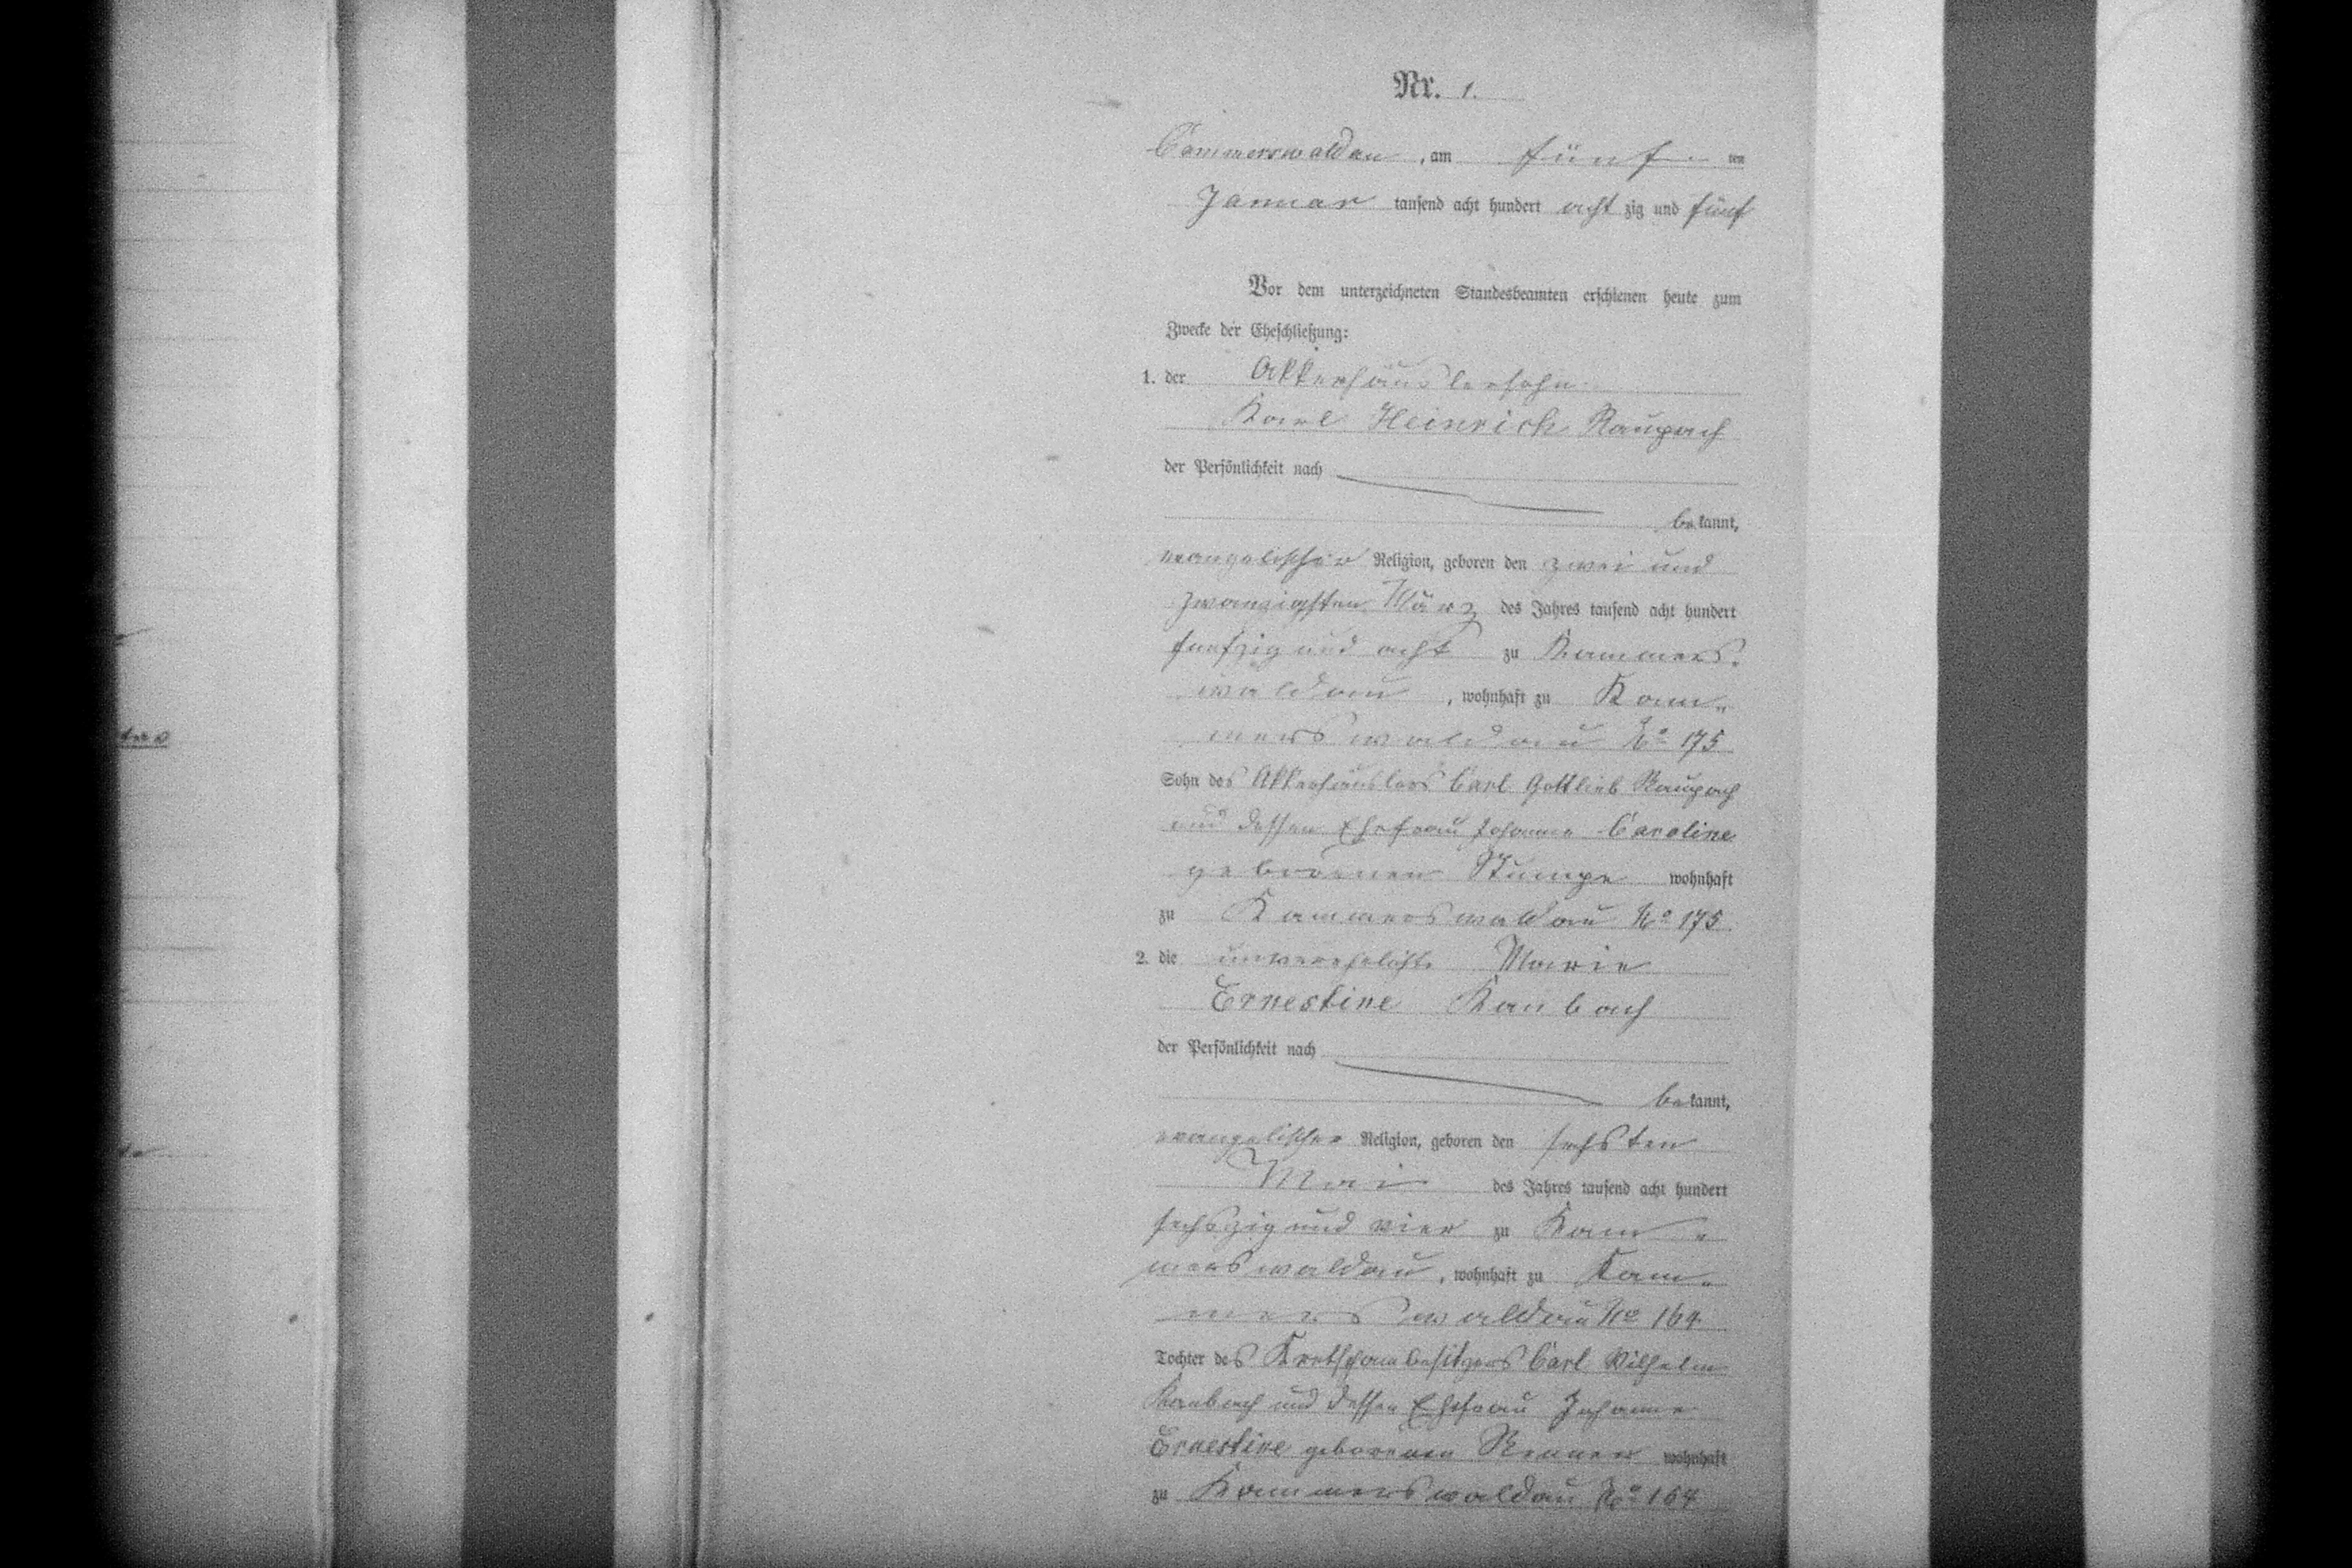 Nr. 1.
Cammerswaldau, am fünf ten
Januar tausend acht hundert acht zig und fünf
Vor dem unterzeichneten Standesbeamten erschienen heute zum
Zwecke der Eheschließung:
1. der Akkerhäuslersohn
Karl Heinrich Raupach
der Persönlichkeit nach
be kannt,
evangelischer Religion, geboren den zwei und
zwanzigsten März des Jahres tausend acht hundert
funfzig und acht zu Kammers-
waldau, wohnhaft zu Kam-
merswaldau No 175
Sohn des Akkerhäuslers Carl Gottlieb Raupach
und dessen Ehefrau Johanne Caroline
gebornen Stumpe wohnhaft
zu Kammerswaldau No 175.
2. die unverehelichte Marie
Ernestine Kanbach
der Persönlichkeit nach
be kannt,
evangelischer Religion, geboren den sechsten
Mai des Jahres tausend acht hundert
sechszig und vier zu Kam-
merswaldau, wohnhaft zu Kam-
merswaldau No 164
Tochter des Kretschambesitzers Carl Wilhelm
Kanbach und dessen Ehefrau Johanne
Ernestine geborenen Renner wohnhaft
zu Kammerswaldau No 164